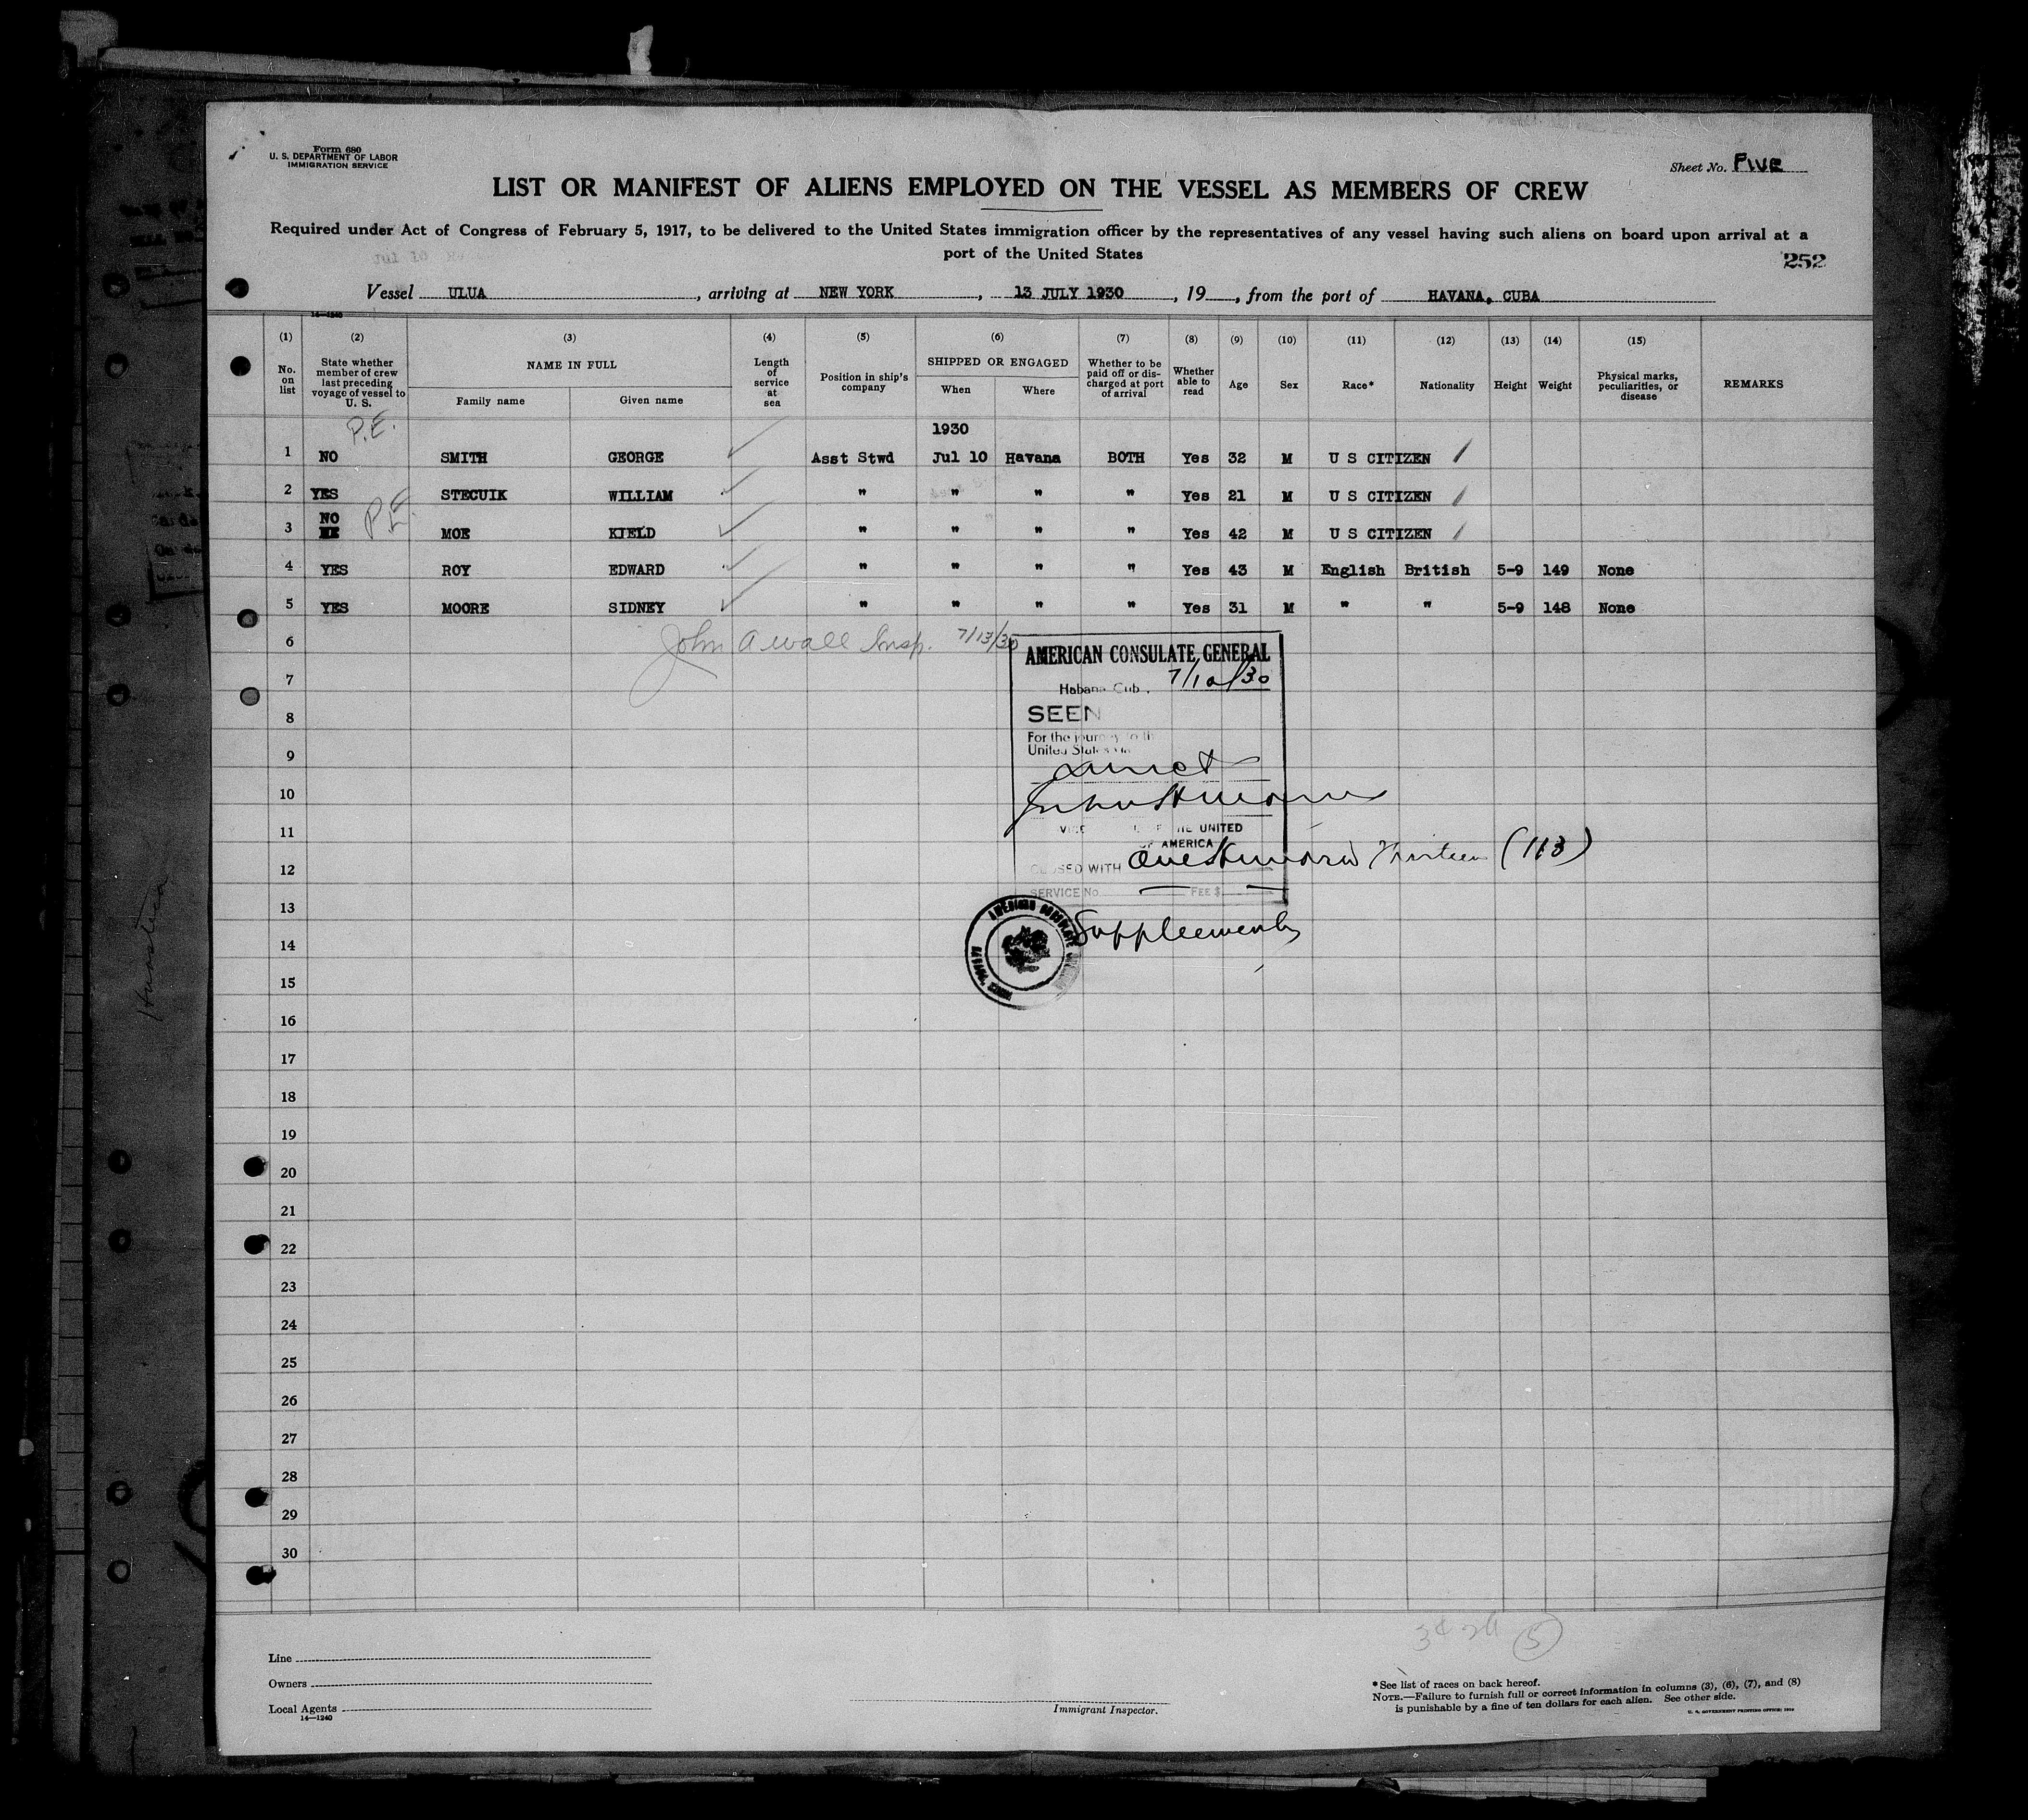 Form 680
U. S. DEPARTMENT OF LABOR
IMMIGRATION SERVICE
Sheet No. Five
LIST OR MANIFEST OF ALIENS EMPLOYED ON THE VESSEL AS MEMBERS OF CREW
Required under Act of Congress of February 5, 1917, to be delivered to the United States immigration officer by the representatives of any vessel having such aliens on board upon arrival at a
port of the United States
252
Vessel ULUA, arriving at NEW YORK, 13 JULY 1930, 19, from the port of HAVANA, CUBA
14—1240
(1) (2) (3) (4) (5) (6) (7) (8) (9) (10) (11) (12) (13) (14) (15)
No. on list
State whether member of crew last preceding voyage of vessel to U. S.
NAME IN FULL
Family name
Given name
Length of service at sea
Position in ship's company
SHIPPED OR ENGAGED
When
Where
Whether to be paid off or discharged at port of arrival
Whether able to read
Age
Sex
Race*
Nationality
Height
Weight
Physical marks, peculiarities, or disease
REMARKS
P.E.
1930
1 NO SMITH GEORGE Asst Stwd Jul 10 Havana BOTH Yes 32 M U S CITIZEN
2 YES STECUIK WILLIAM " " " " Yes 21 M U S CITIZEN
P.E.
3 NO MOE KIELD " " " " Yes 42 M U S CITIZEN
4 YES ROY EDWARD " " " " Yes 43 M English British 5-9 149 None
5 YES MOORE SIDNEY " " " " Yes 31 M " " 5-9 148 None
6
John A Wall Insp. 7/13/30
7
8
9
10
11
12
13
14
15
16
17
18
19
20
21
22
23
24
25
26
27
28
29
30
AMERICAN CONSULATE GENERAL
Habana Cub . 7/10/30
SEEN
For the journey to th
United States
UNITED
OF AMERICA
CLOSED WITH One Hundred Thirteen (113)
SERVICE No. FEE $
Supplements
Line
Owners
Local Agents
14—1240
Immigrant Inspector.
*See list of races on back hereof.
NOTE.—Failure to furnish full or correct information in columns (3), (6), (7), and (8)
is punishable by a fine of ten dollars for each alien. See other side.
U. S. GOVERNMENT PRINTING OFFICE:
5